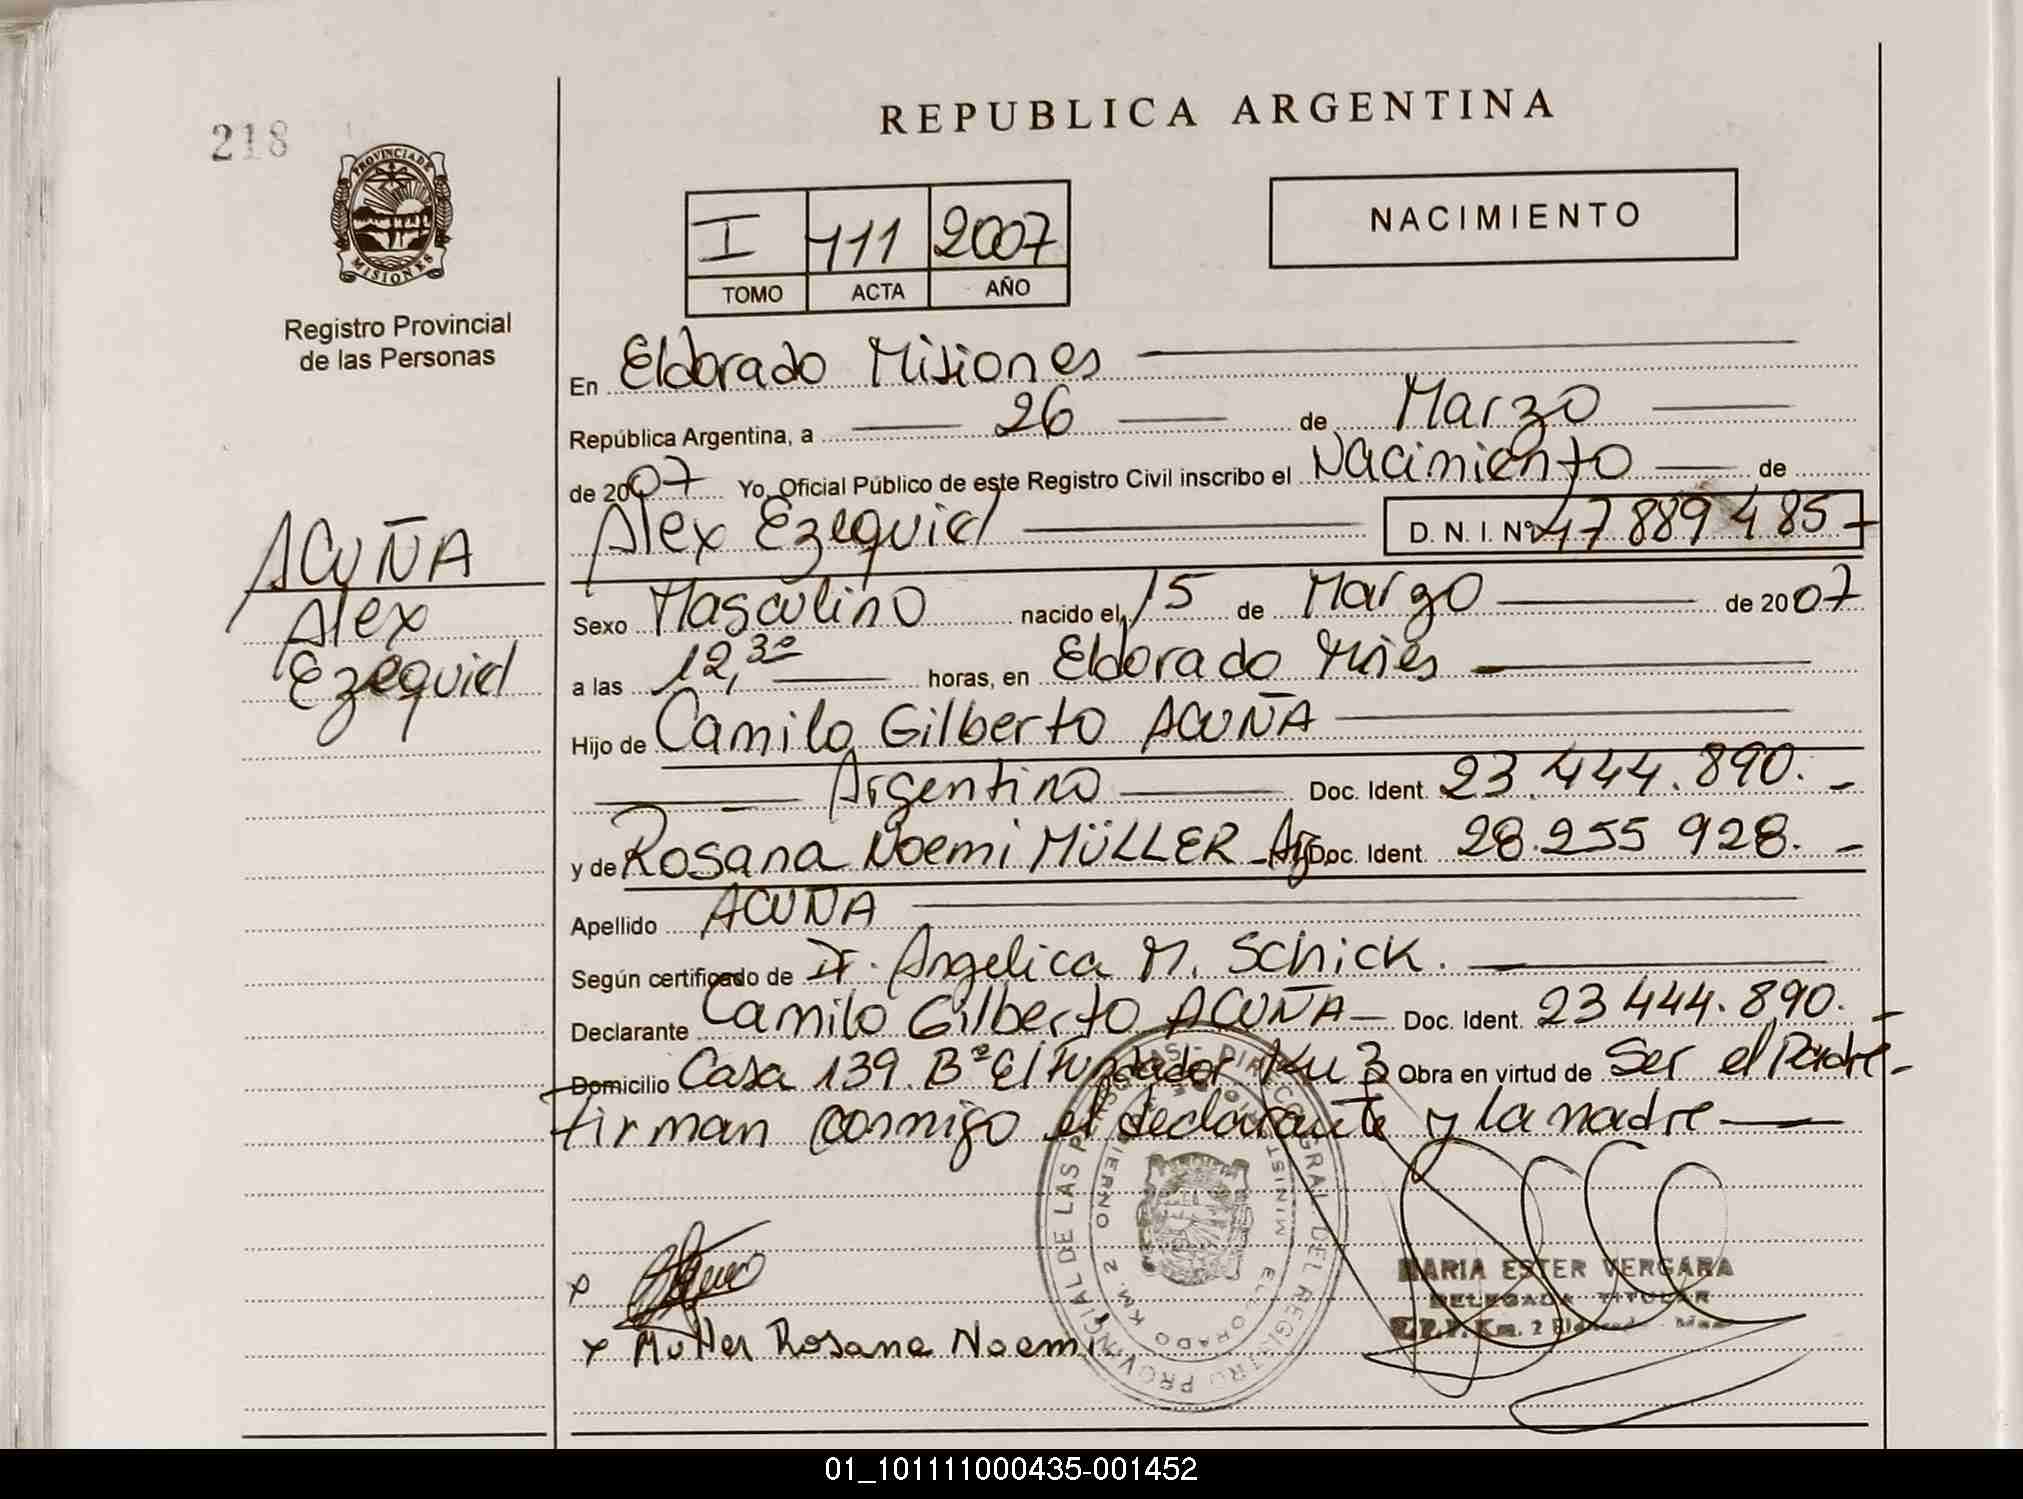 218
PROVINCIA DE
MISIONES
Registro Provincial
de las Personas
REPUBLICA ARGENTINA
I 111 2007
TOMO ACTA AÑO
NACIMIENTO
En Eldorado Misiones
República Argentina, a 26 de Marzo
de 2007 Yo, Oficial Público de este Registro Civil inscribo el Nacimiento de
Alex Ezequiel D. N. I. Nº 47 889 485
ACUÑA
Alex
Ezequiel
Sexo Masculino nacido el 15 de Marzo de 2007
a las 12,30 horas, en Eldorado Mnes
Hijo de Camilo Gilberto ACUÑA
Argentino Doc. Ident. 23.444.890.-
y de Rosana Noemi MÜLLER Arg Doc. Ident. 28.255 928.-
Apellido ACUÑA
Según certificado de Dr. Angelica M. Schick.
Declarante Camilo Gilberto ACUÑA Doc. Ident. 23 444.890.-
Domicilio Casa 139 Bº El Fundador Km 3 Obra en virtud de Ser el Padre-
firman conmigo el declarante y la madre
x
x Muller Rosana Noemi
REGISTRO PROVINCIAL DE LAS PERSONAS - DIRECC. GRAL. DEL
ELDORADO KM. 2
MARIA ESTER VERGARA
DELEGADA TITULAR
R.P.P. Km. 2 Eldorado - Mnes
01_101111000435-001452